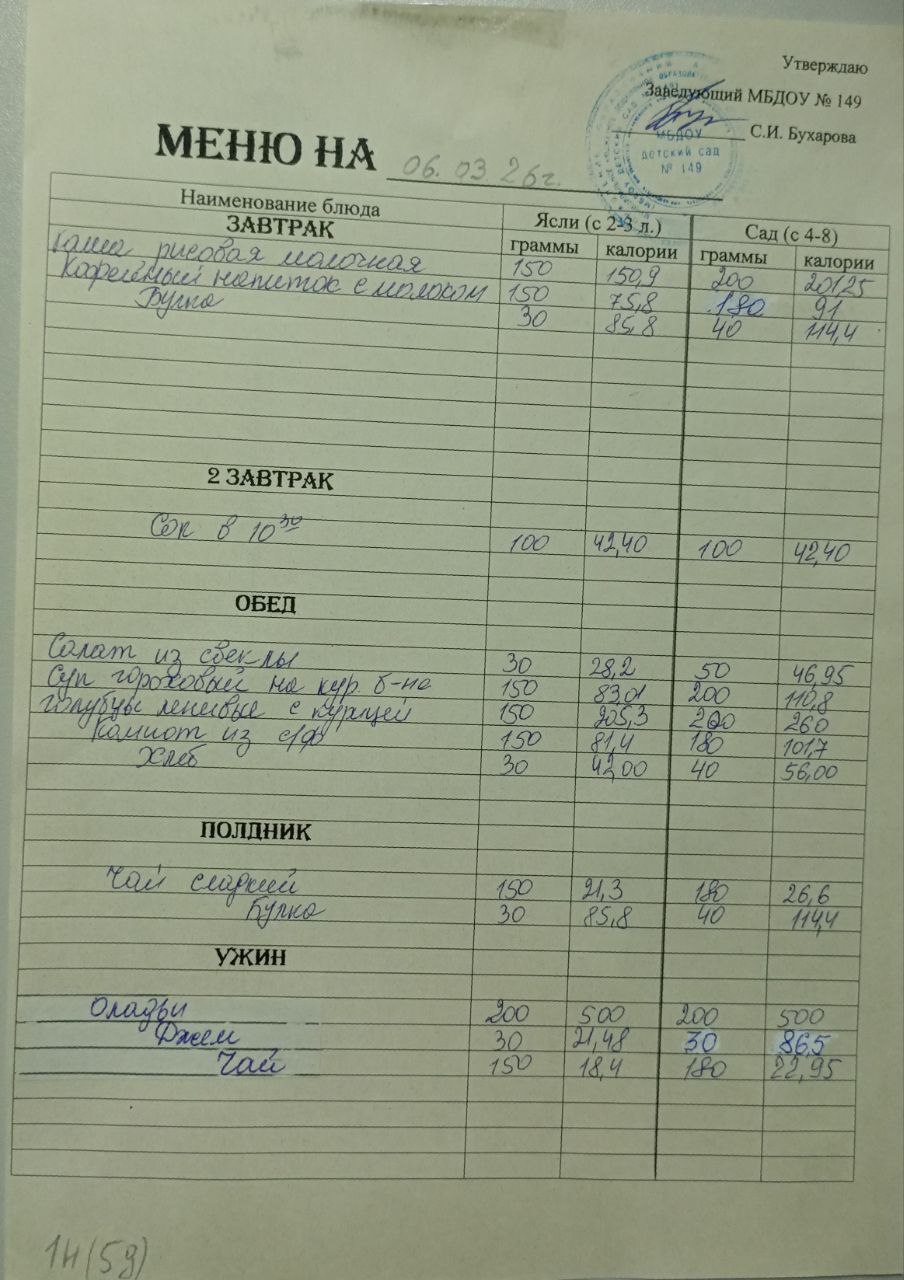 Утверждаю
Заведующий МБДОУ № 149
С.И. Бухарова
МБДОУ
детский сад
№ 149
МЕНЮ НА 06.03 26г.
Наименование блюда Ясли (с 2-3 л.) Сад (с 4-8)
ЗАВТРАК граммы калории граммы калории
Каша рисовая молочная 150 150,9 200 201,25
Кофейный напиток с молоком 150 75,8 180 91
Булка 30 85,8 40 114,4
2 ЗАВТРАК
Сок в 10³⁰ 100 42,40 100 42,40
ОБЕД
Салат из свеклы 30 28,2 50 46,95
Суп гороховый на кур. б-не 150 83,01 200 110,8
Голубцы ленивые с курицей 150 205,3 200 260
Компот из с/ф 150 81,4 180 101,7
Хлеб 30 42,00 40 56,00
ПОЛДНИК
Чай сладкий 150 21,3 180 26,6
Булка 30 85,8 40 114,4
УЖИН
Оладьи 200 500 200 500
Джем 30 21,48 30 86,5
Чай 150 18,4 180 22,95
1Н(5д)